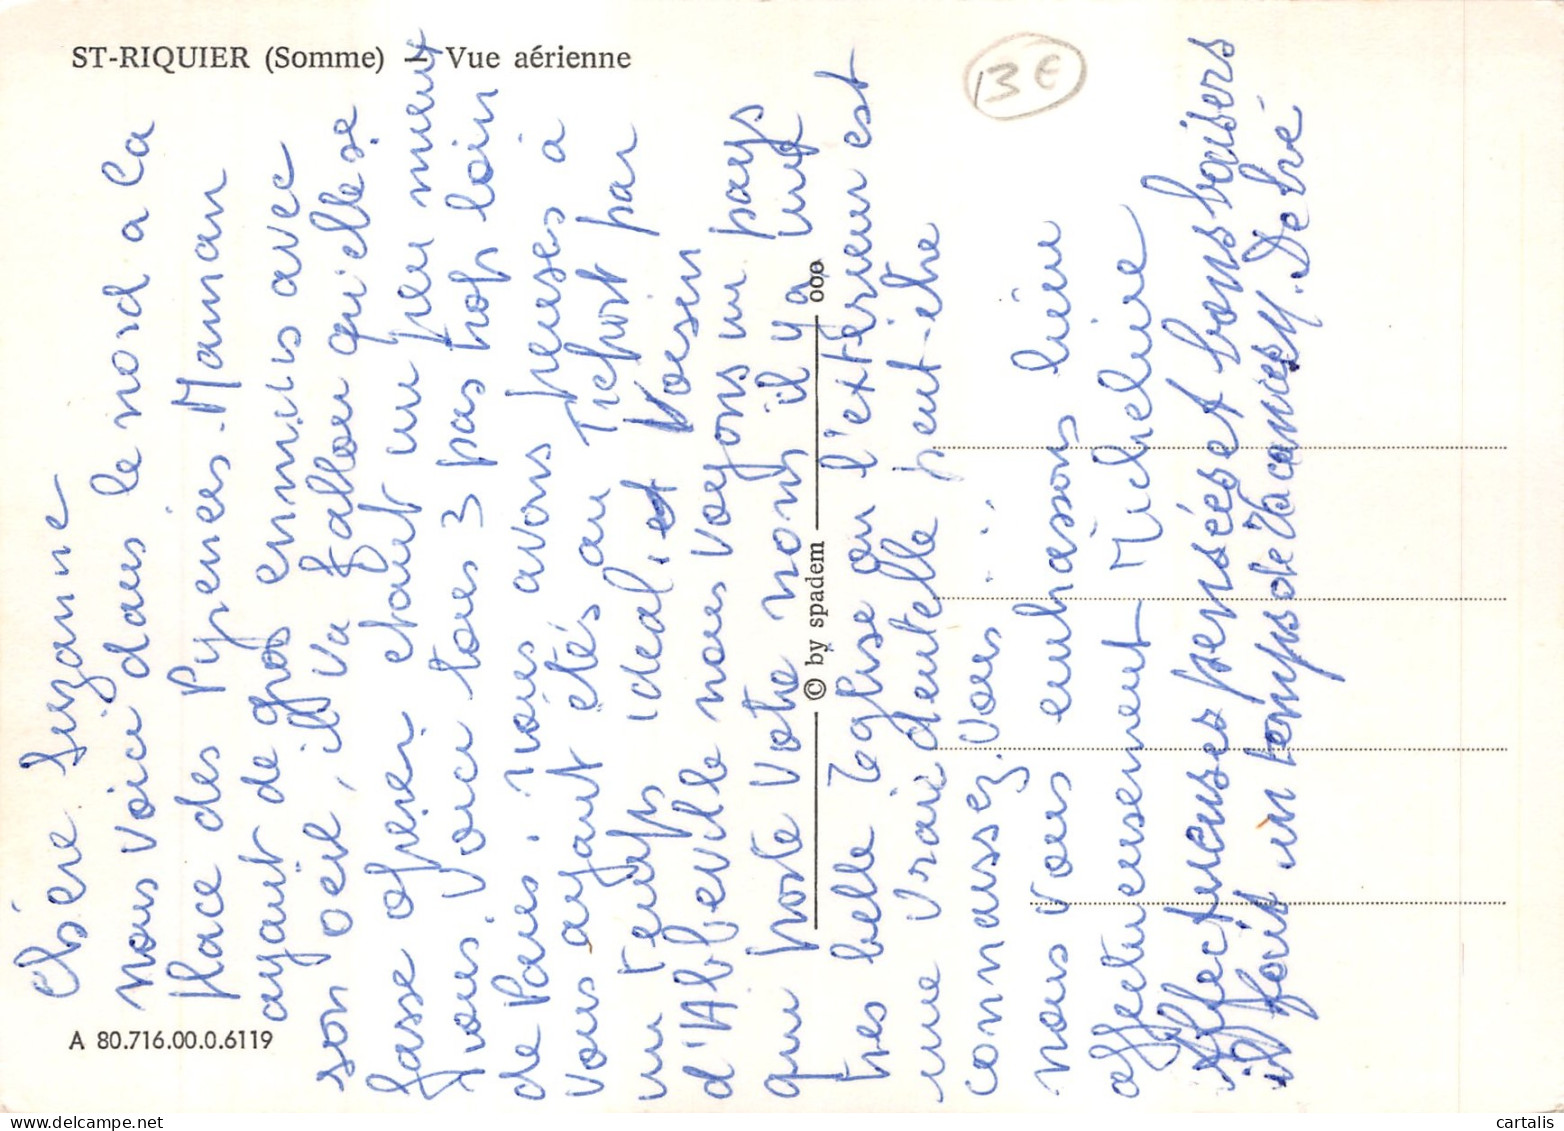 ST-RIQUIER (Somme) — Vue aérienne
13 €
Chère Suzanne
nous voici dans le nord a la
place des Pyrenées. Maman
ayant de gros ennuis avec
son oeil, il va falloir qu'elle se
fasse operer etant un peu mieux
nous voici tous 3 pas trop loin
de Paris. nous avons penses à
vous ayant étés au Treport par
un temps ideal. et Voisin
d'Abbeville nous voyons un pays
qui porte votre nom, il y a une
tres belle Eglise ou l'exterieur est
une vraie dentelle peut-etre
connaissez-vous ...
nous vous embrassons bien
affectueusement Micheline
Affectueuses pensées et bons baisers
il fait un temps de Vacances M. Debré
© by spadem
ooo
A 80.716.00.0.6119
cartalis